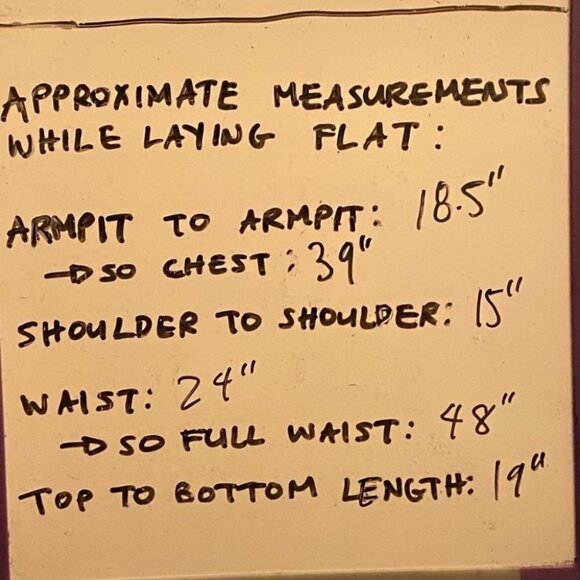 APPROXIMATE MEASUREMENTS
WHILE LAYING FLAT:
ARMPIT TO ARMPIT: 18.5"
→ SO CHEST: 39"
SHOULDER TO SHOULDER: 15"
WAIST: 24"
→ SO FULL WAIST: 48"
TOP TO BOTTOM LENGTH: 19"